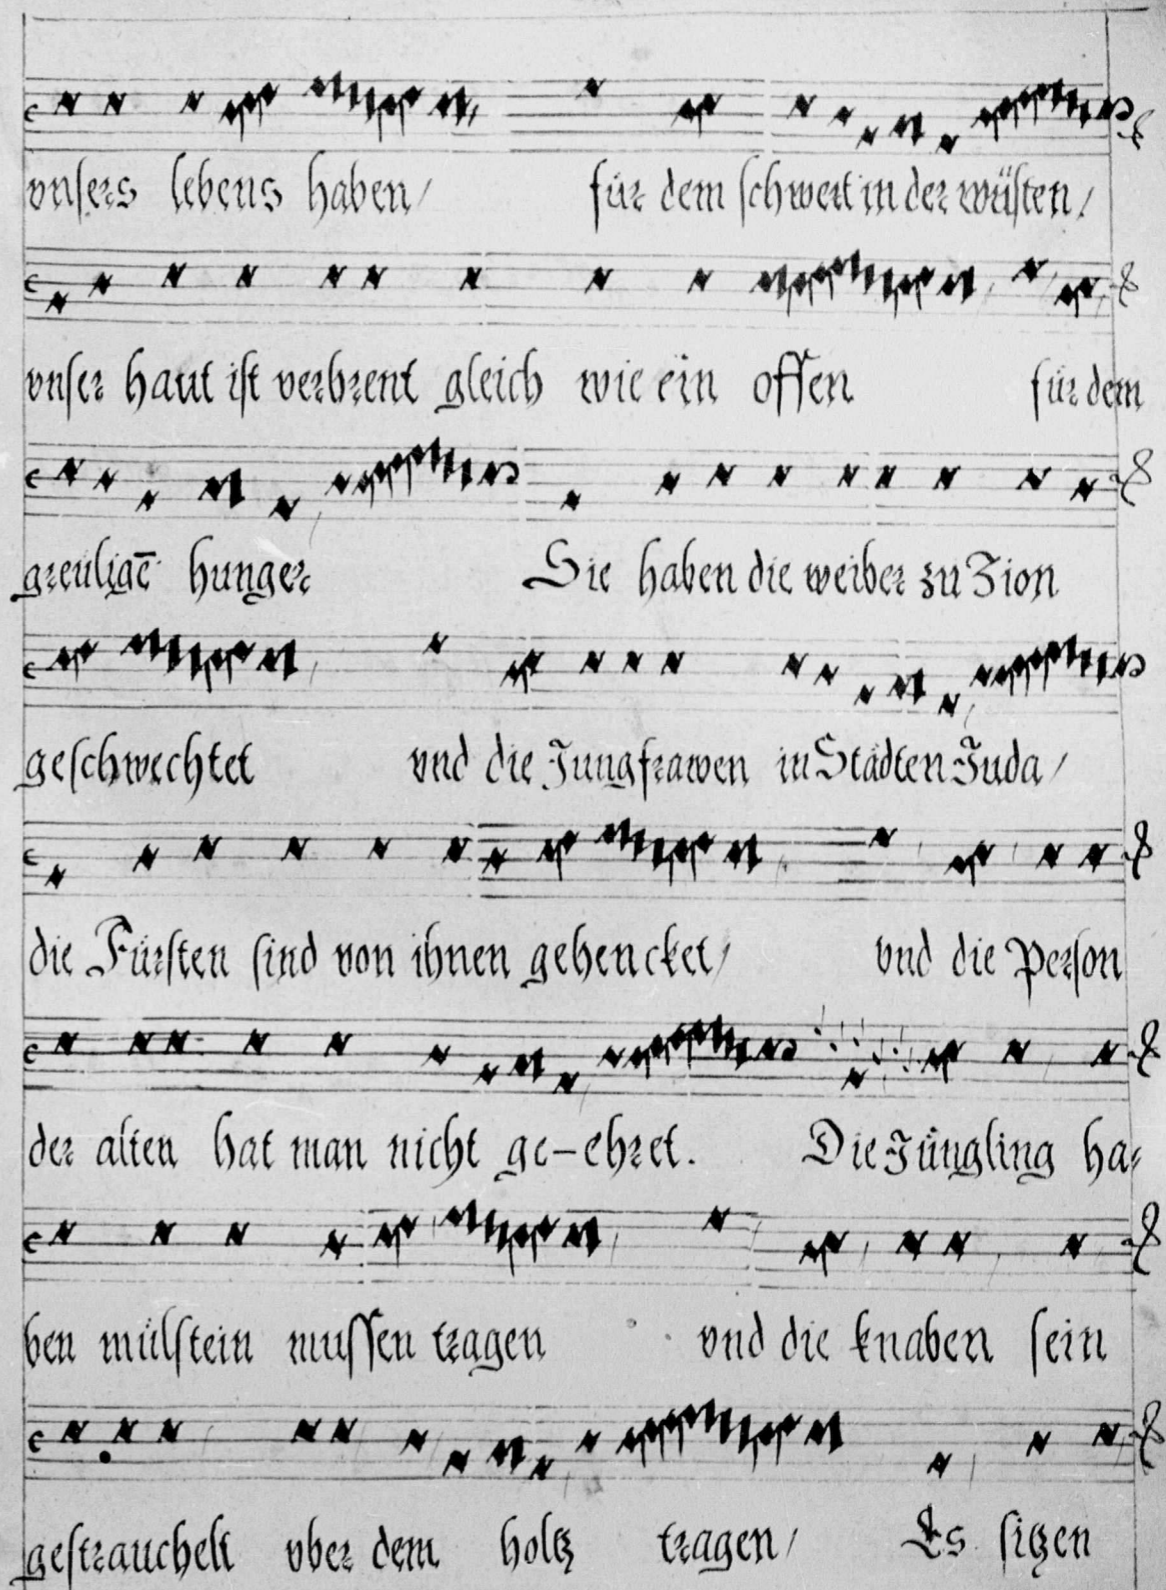 vnsers lebens haben/ für dem schwert in der wüsten/
vnser haut ist verbrent gleich wie ein offen für dem
greüligē hunger Sie haben die weiber zu Zion
geschwechtet vnd die Jungfrawen in Städten Juda/
die Fürsten sind von ihnen gehencket/ vnd die Person
der alten hat man nicht ge-ehret. Die Jüngling ha=
ben mülstein mussen tragen vnd die knaben sein
gestrauchelt vber dem holtz tragen/ Es sitzen